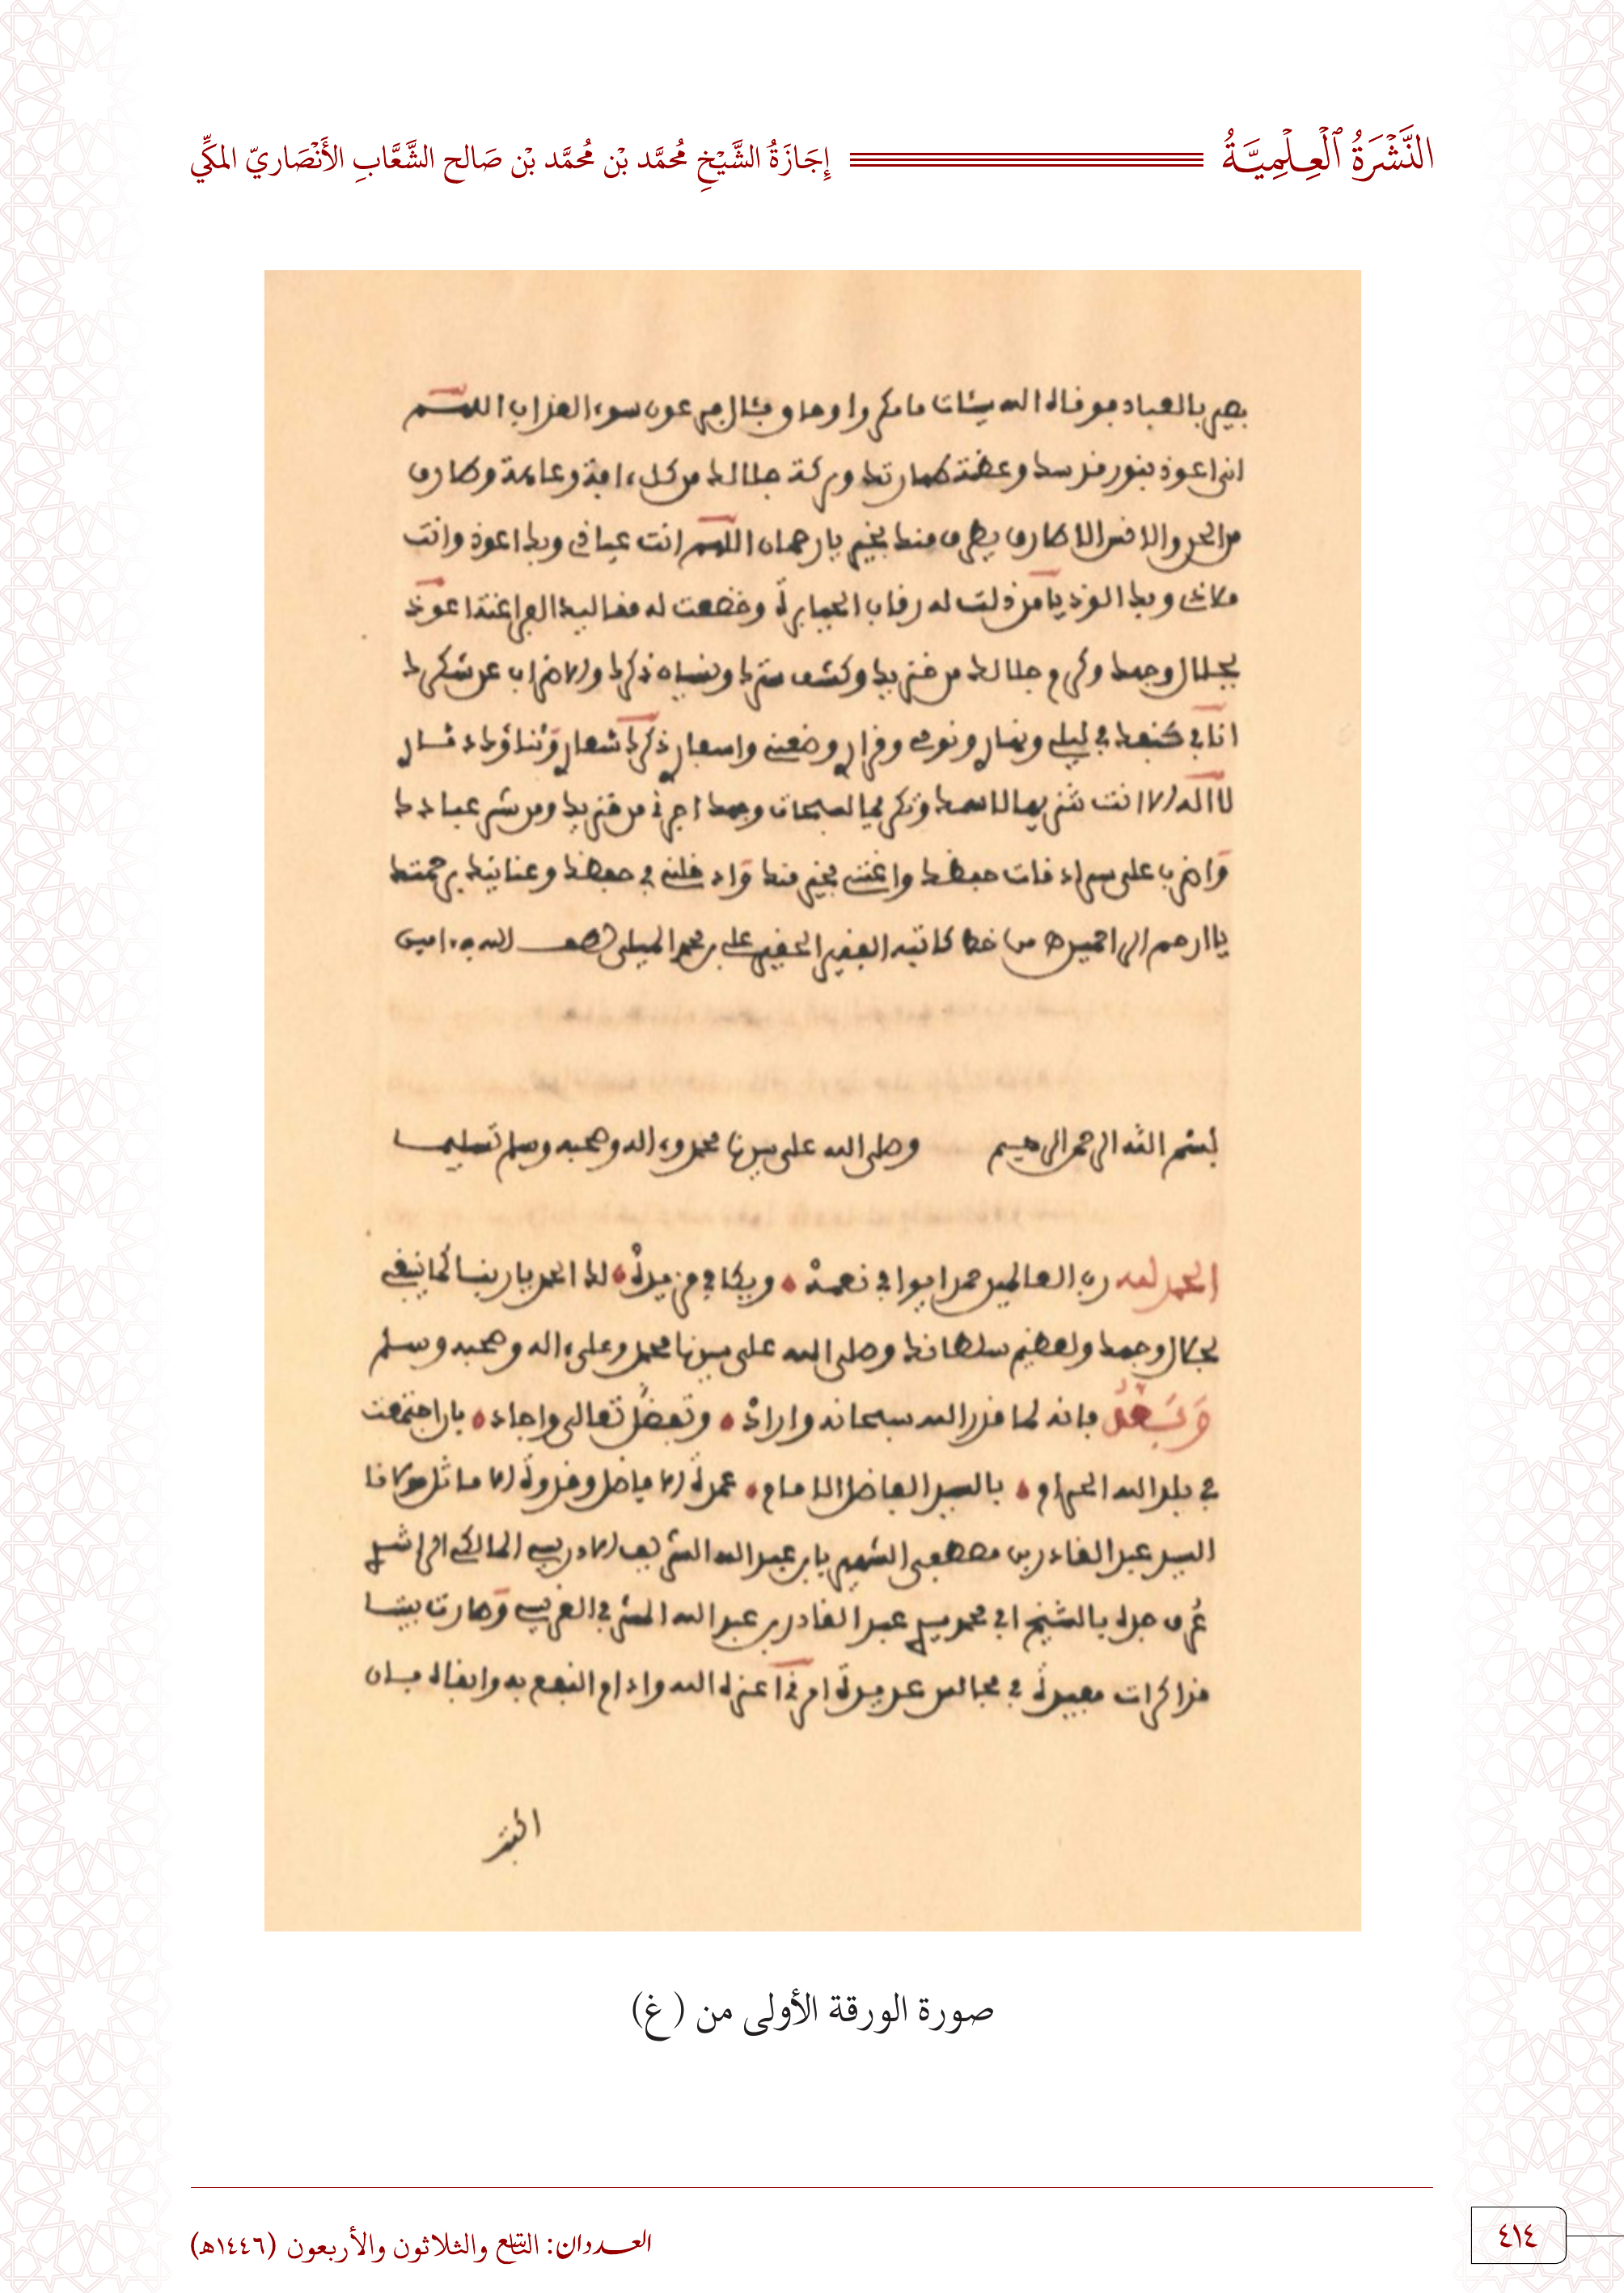 النَّشْرَةُ ٱلْعِلْمِيَّةُ
إِجَازَةُ الشَّيْخِ مُحَمَّد بْن مُحَمَّد بْن صَالح الشَّعَّابِ الأَنْصَاريّ المكِّي
بصير بالعباد فوقاه الله سيئات ما مكروا وحاق بئال فرعون سوء العذاب اللهم
اني اعوذ بنور قدسك وعظمة طهارتك وبركة جلالك من كل ءافة وعاهة وطارق
من الجن والانس الا طارق يطرق منك بخير يا رحمان اللهم انت عياذي وبك اعوذ وانت
ملاذي وبك الوذ يا من ذلت له رقاب الجبابرة وخضعت له مقاليد الفراعنة اعوذ
بجلال وجهك وكرم جلالك من خزيك وكشف سترك ونسيان ذكرك والاضراب عن شكرك
انا في كنفك في ليلي ونهاري ونومي وقراري وضعني واسفاري ذكرك شعاري وثناؤك دثاري
لا اله الا انت تنزيها لاسمك وتكريما لسبحات وجهك اجرني من خزيك ومن شر عبادك
واضرب علي سرادقات حفظك واغثني بخير منك وادخلني في حفظك وعنايتك برحمتك
يا ارحم الراحمين من خط كاتبه الفقير الحقير علي بن محمد الميلي لطف الله به ءامين
بسم الله الرحمن الرحيم وصلى الله على سيدنا محمد وءاله وصحبه وسلم تسليما
الحمد لله رب العالمين حمدا يوافي نعمه ويكافي مزيده لك الحمد يا ربنا كما ينبغي
لجلال وجهك ولعظيم سلطانك وصلى الله على سيدنا محمد وعلى ءاله وصحبه وسلم
وبعد فانه لما قدر الله سبحانه واراد وتفضل تعالى واجاد بان اجتمعت
في بلد الله الحرام بالسيد الفاضل الامام عمدة الافاضل وقدوة الاماثل مولانا
السيد عبد القادر بن مصطفى الشهير بابن عبد الله الشريف الادريسي المالكي الراشدي
عرف جده بالشيخ ابي محمد سيدي عبد القادر بن عبد الله المشرفي الغريسي وصارت بيننا
مذاكرات مفيدة في مجالس عديدة امرني اعزه الله وادام النفع به وابقاه بان
صورة الورقة الأولى من (غ)
العددان: التاسع والثلاثون والأربعون (١٤٤٦هـ)
٤١٤